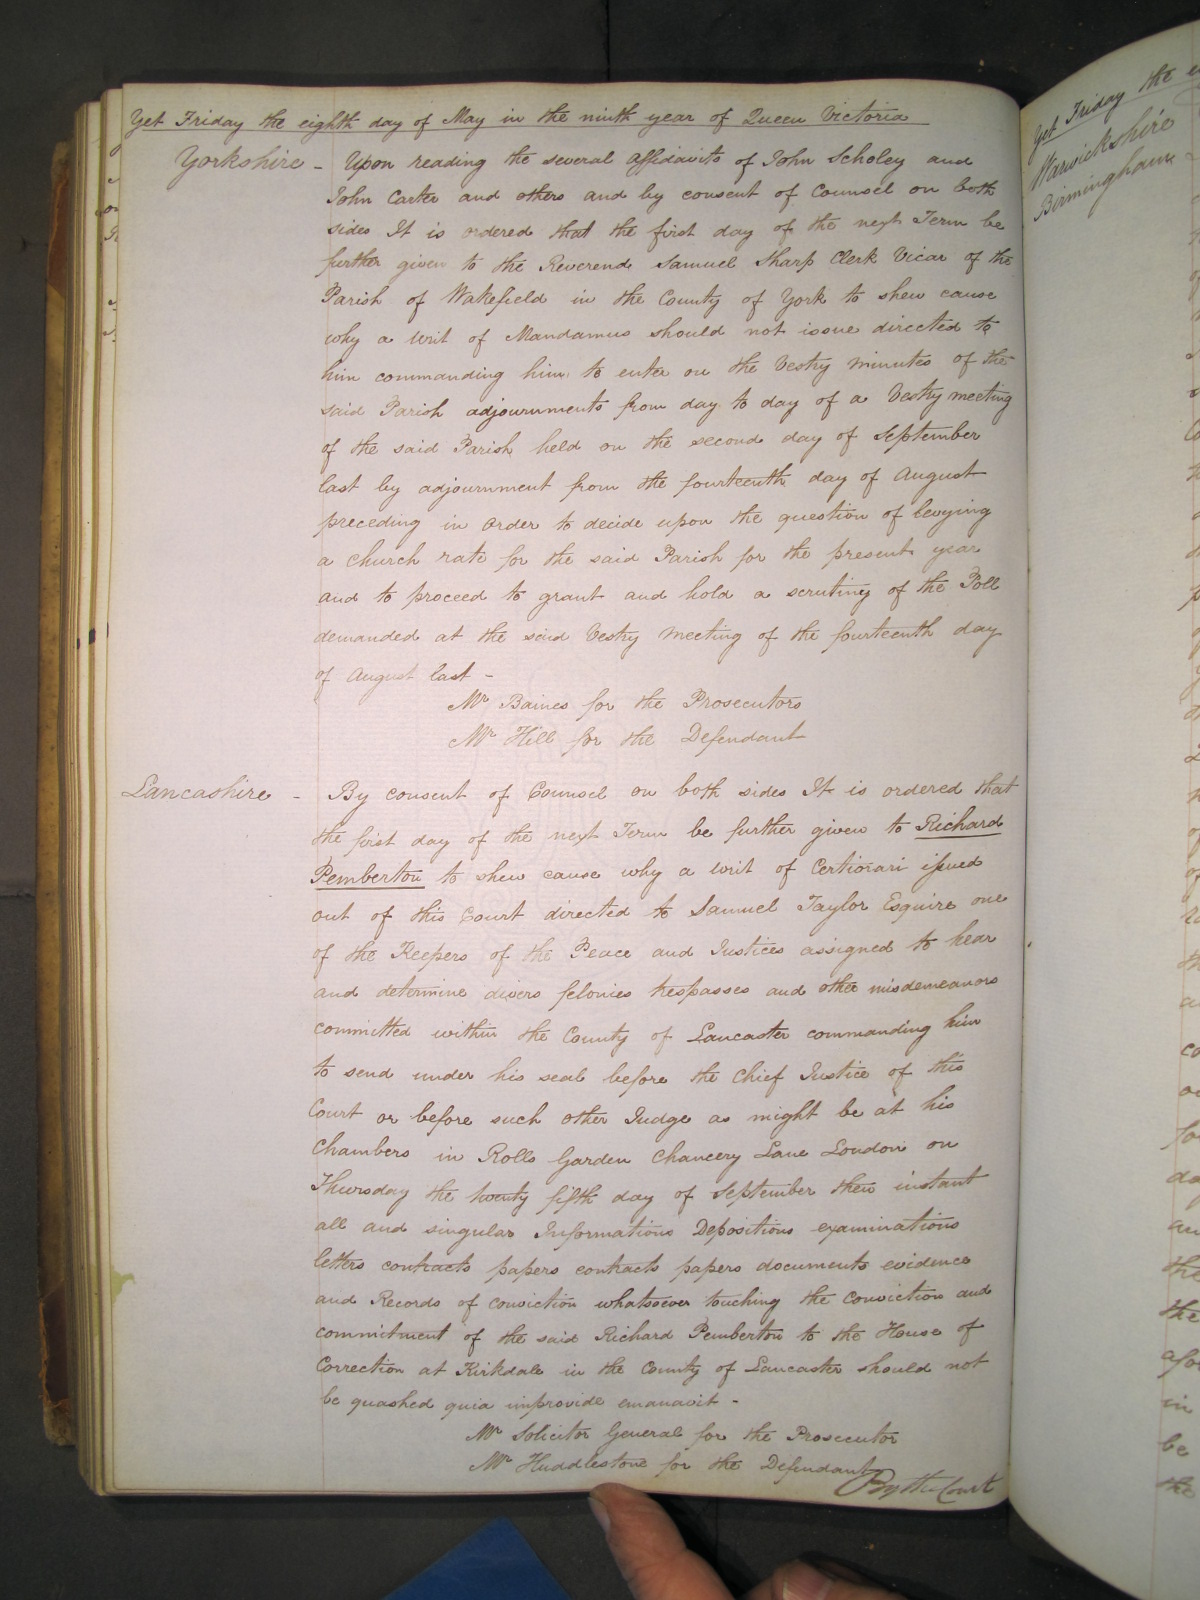 Yet Friday the eighth day of May in the ninth year of Queen Victoria
Yorkshire - Upon reading the several affidavits of John Scholey and
John Carter and others and by consent of Counsel on both
sides It is ordered that the first day of the next Term be
further given to the Reverend Samuel Sharp Clerk Vicar of the
Parish of Wakefield in the County of York to shew cause
why a writ of Mandamus should not issue directed to
him commanding him to enter on the Vestry minutes of the
said Parish adjournments from day to day of a Vestry meeting
of the said Parish held on the second day of September
last by adjournment from the fourteenth day of August
preceding in order to decide upon the question of levying
a church rate for the said Parish for the present year
and to proceed to grant and hold a scrutiny of the Poll
demanded at the said Vestry Meeting of the fourteenth day
of August last -
Mr Baines for the Prosecutors
Mr Hill for the Defendant
Lancashire - By consent of Counsel on both sides It is ordered that
the first day of the next Term be further given to Richard
Pemberton to shew cause why a writ of Certiorari issued
out of this Court directed to Samuel Taylor Esquire one
of the Keepers of the Peace and Justices assigned to hear
and determine divers felonies trespasses and other misdemeanors
committed within the County of Lancaster commanding him
to send under his seal before the Chief Justice of this
Court or before such other Judge as might be at his
Chambers in Rolls Garden Chancery Lane London on
Thursday the twenty fifth day of September then instant
all and singular Informations Depositions examinations
letters contracts papers contracts papers documents evidence
and Records of conviction whatsoever touching the conviction and
commitment of the said Richard Pemberton to the House of
Correction at Kirkdale in the County of Lancaster should not
be quashed quia improvide emanavit -
Mr Solicitor General for the Prosecutor
Mr Huddlestone for the Defendant
By the Court
Yet Friday the
Warwickshire
Birmingham